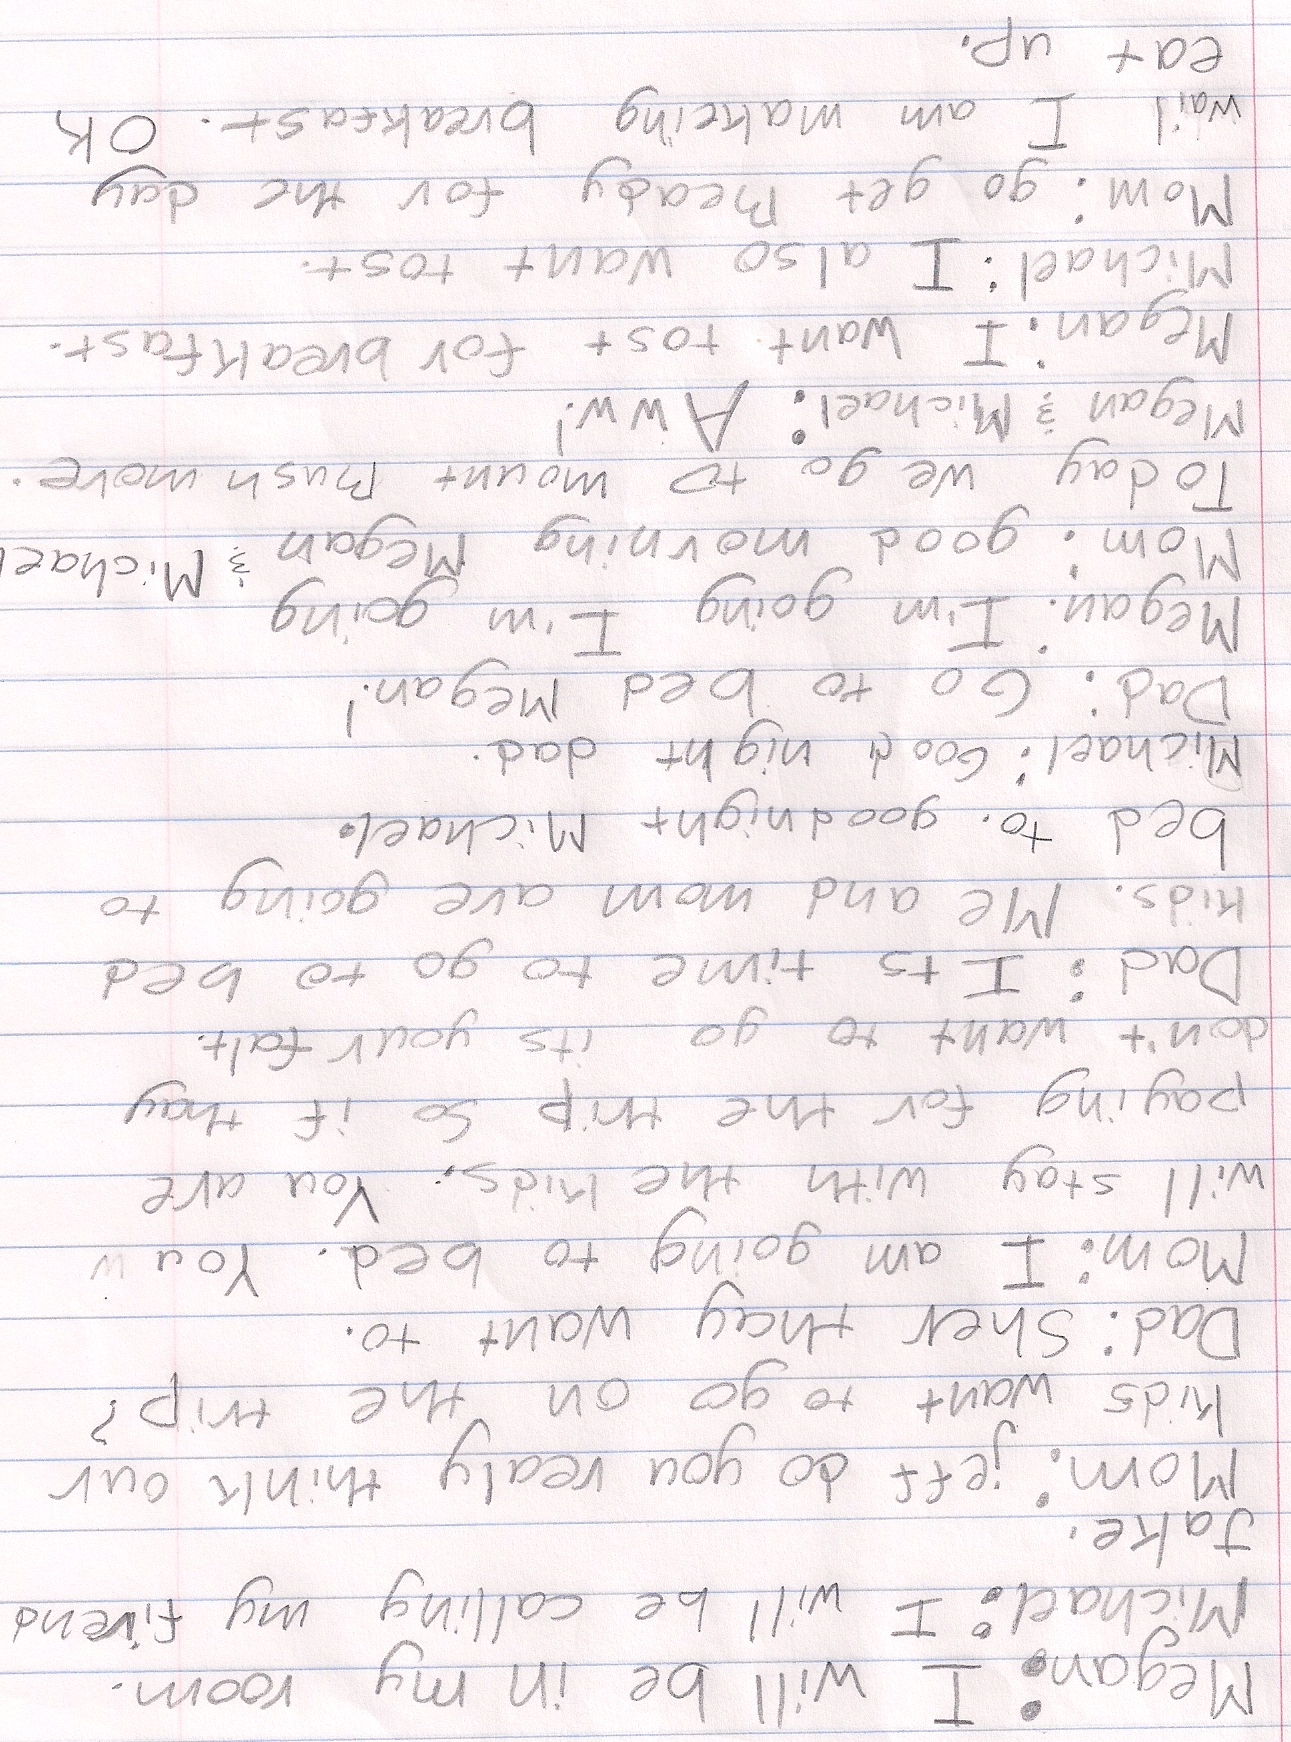 Megan: I will be in my room.
Michael: I will be calling my firend
Jake.
Mom: jeff do you realy think our
kids want to go on the trip?
Dad: Sher thay want to.
Mom: I am going to bed. You w
will stay with the kids. You are
paying for the trip so if thay
don't want to go its your falt.
Dad: Its time to go to bed
kids. Me and mom are going to
bed to. goodnight Michael.
Michael: Good night dad.
Dad: Go to bed Megan!
Megan: I'm going I'm going
Mom: good morning Megan & Michael
Today we go to mount Rushmore.
Megan & Michael: Aww!
Megan: I want tost for breakfast.
Michael: I also want tost.
Mom: go get Ready for the day
wail I am makeing breakfast. OK
eat up.